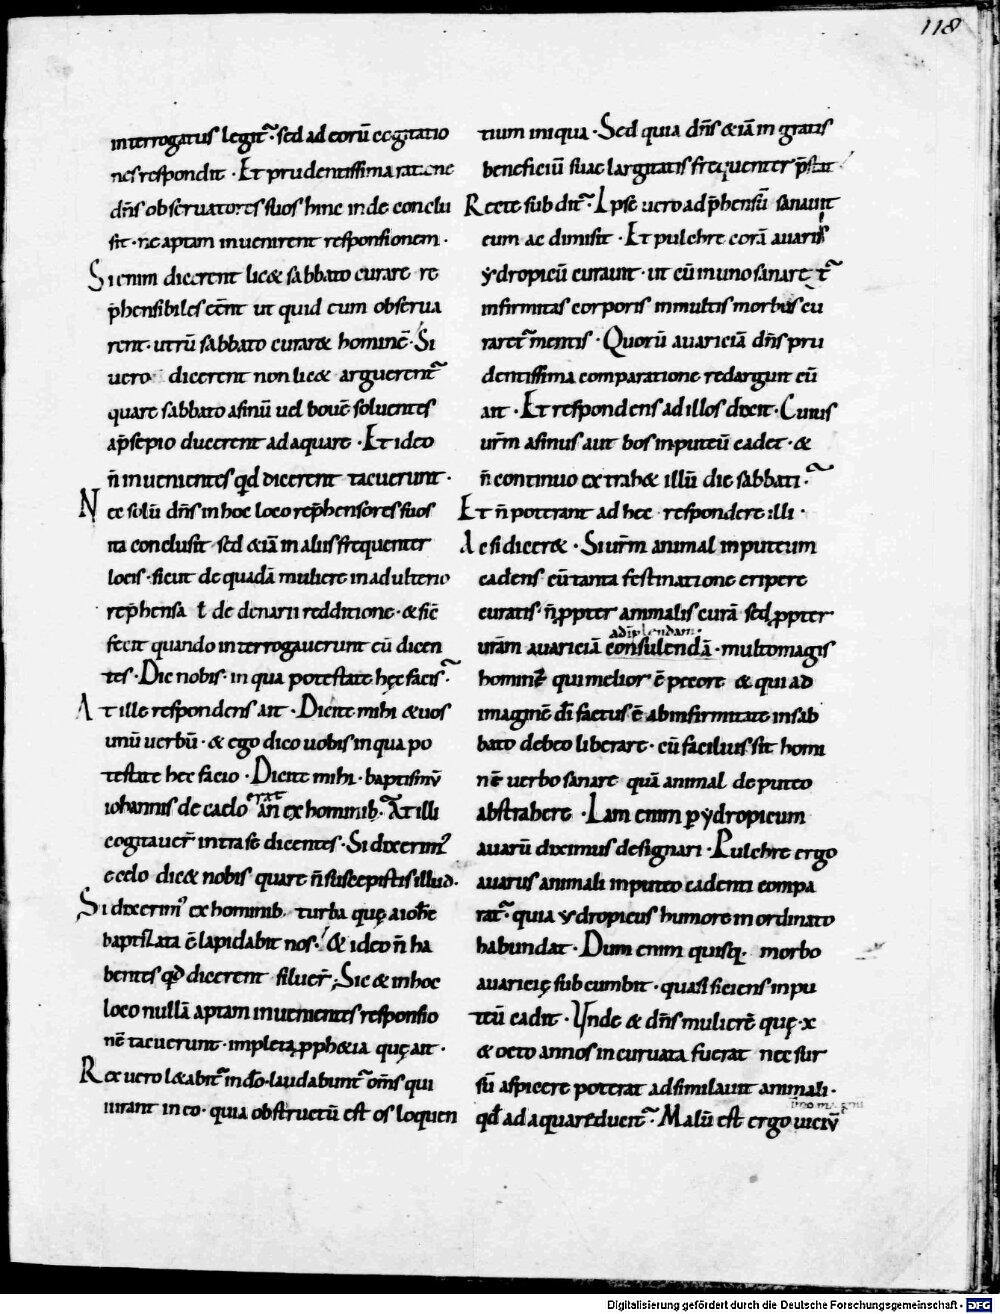 118
interrogatus legit̄. sed ad eorū cogitatio
nes respondit. Et prudentissima ratione
dn̄s observatores suos hinc inde conclu
sit. ne aptam invenirent responsionem.
Si enim dicerent lic& sabbato curare re
p̄hensibiles eēnt ut quid cum observa
rent. utrū sabbato curar& hominē. Si
vero dicerent non lic& arguerent̄
quare sabbato asinū vel bovē solventes
a p̄sepio ducerent adaquare. Et ideo
n̄ invenientes qd̄ dicerent tacuerunt.
Nec solū dn̄s in hoc loco rep̄hensores suos
ita conclusit sed &iā in aliis frequenter
locis. sicut de quadā muliere in adulterio
rep̄hensa ł de denarii redditione. & sic̄
fecit quando interrogaverunt eū dicen
tes. Dic nobis. in qua potestate hęc facis.
At ille respondens ait. Dicite mihi & vos
unū verbū. & ego dico vobis in qua po
testate hęc facio. Dicite mihi. baptismū
iohannis de caelo erat an̄ ex hominib. At illi
cogitaver̄ intra se dicentes. Si dixerim̄
e celo dic& nobis quare n̄ suscepistis illud.
Si dixerim̄ ex hominib. turba quę a ioh̄e
baptizata ē lapidabit nos. & ideo n̄ ha
bentes qd̄ dicerent siluer̄; Sic & in hoc
loco nullā aptam invenientes responsio
nē tacuerunt. impleta p̄ph&ia quę ait.
Rex vero l&abit̄ in dō. laudabunt̄ om̄s qui
iurant in eo. quia obstructū est os loquen
tium iniqua. Sed quia dn̄s &iā ingratis
beneficiū suae largitatis frequenter p̄stat
Recte subdit̄. Ipse vero adp̄hensū sanavit
eum ac dimisit. Et pulchre corā avaris
ydropicū curavit. ut eū in uno sanaret̄
infirmitas corporis in multis morbus cu
raret̄ mentis. Quorū avariciā dn̄s pru
dentissima comparatione redarguit cū
ait. Et respondens ad illos dixit. Cuius
vr̄m asinus aut bos in puteū cadet. &
n̄ continuo extrah& illū die sabbati.
Et n̄ poterant ad hec respondere illi.
Ac si dicer&. Si vr̄m animal in puteum
cadens cū tanta festinatione eripere
curatis n̄ ppter animalis curā sed ppter
adimplendam.
vr̄am avariciā consulendā. multo magis
hominē qui melior ē pecore & qui ad
imaginē dī factus ē ab infirmitate in sab
bato debeo liberare. cū facilius sit homi
nē verbo sanare quā animal de puteo
abstrahere. Iam enim p ydropicum
avarū diximus designari. Pulchre ergo
avarus animali in puteo cadenti compa
rat̄. quia ydropicus humore inordinato
habundat. Dum enim quisq. morbo
avaricię subcumbit. quasi siciens in pu
teū cadit. Unde & dn̄s mulierē quę x
& octo annos incurvata fuerat nec sur
sū aspicere poterat adsimilavit animali.
qd̄ adaquare ducit̄. Malū est ergo viciū
Digitalisierung gefördert durch die Deutsche Forschungsgemeinschaft - DFG